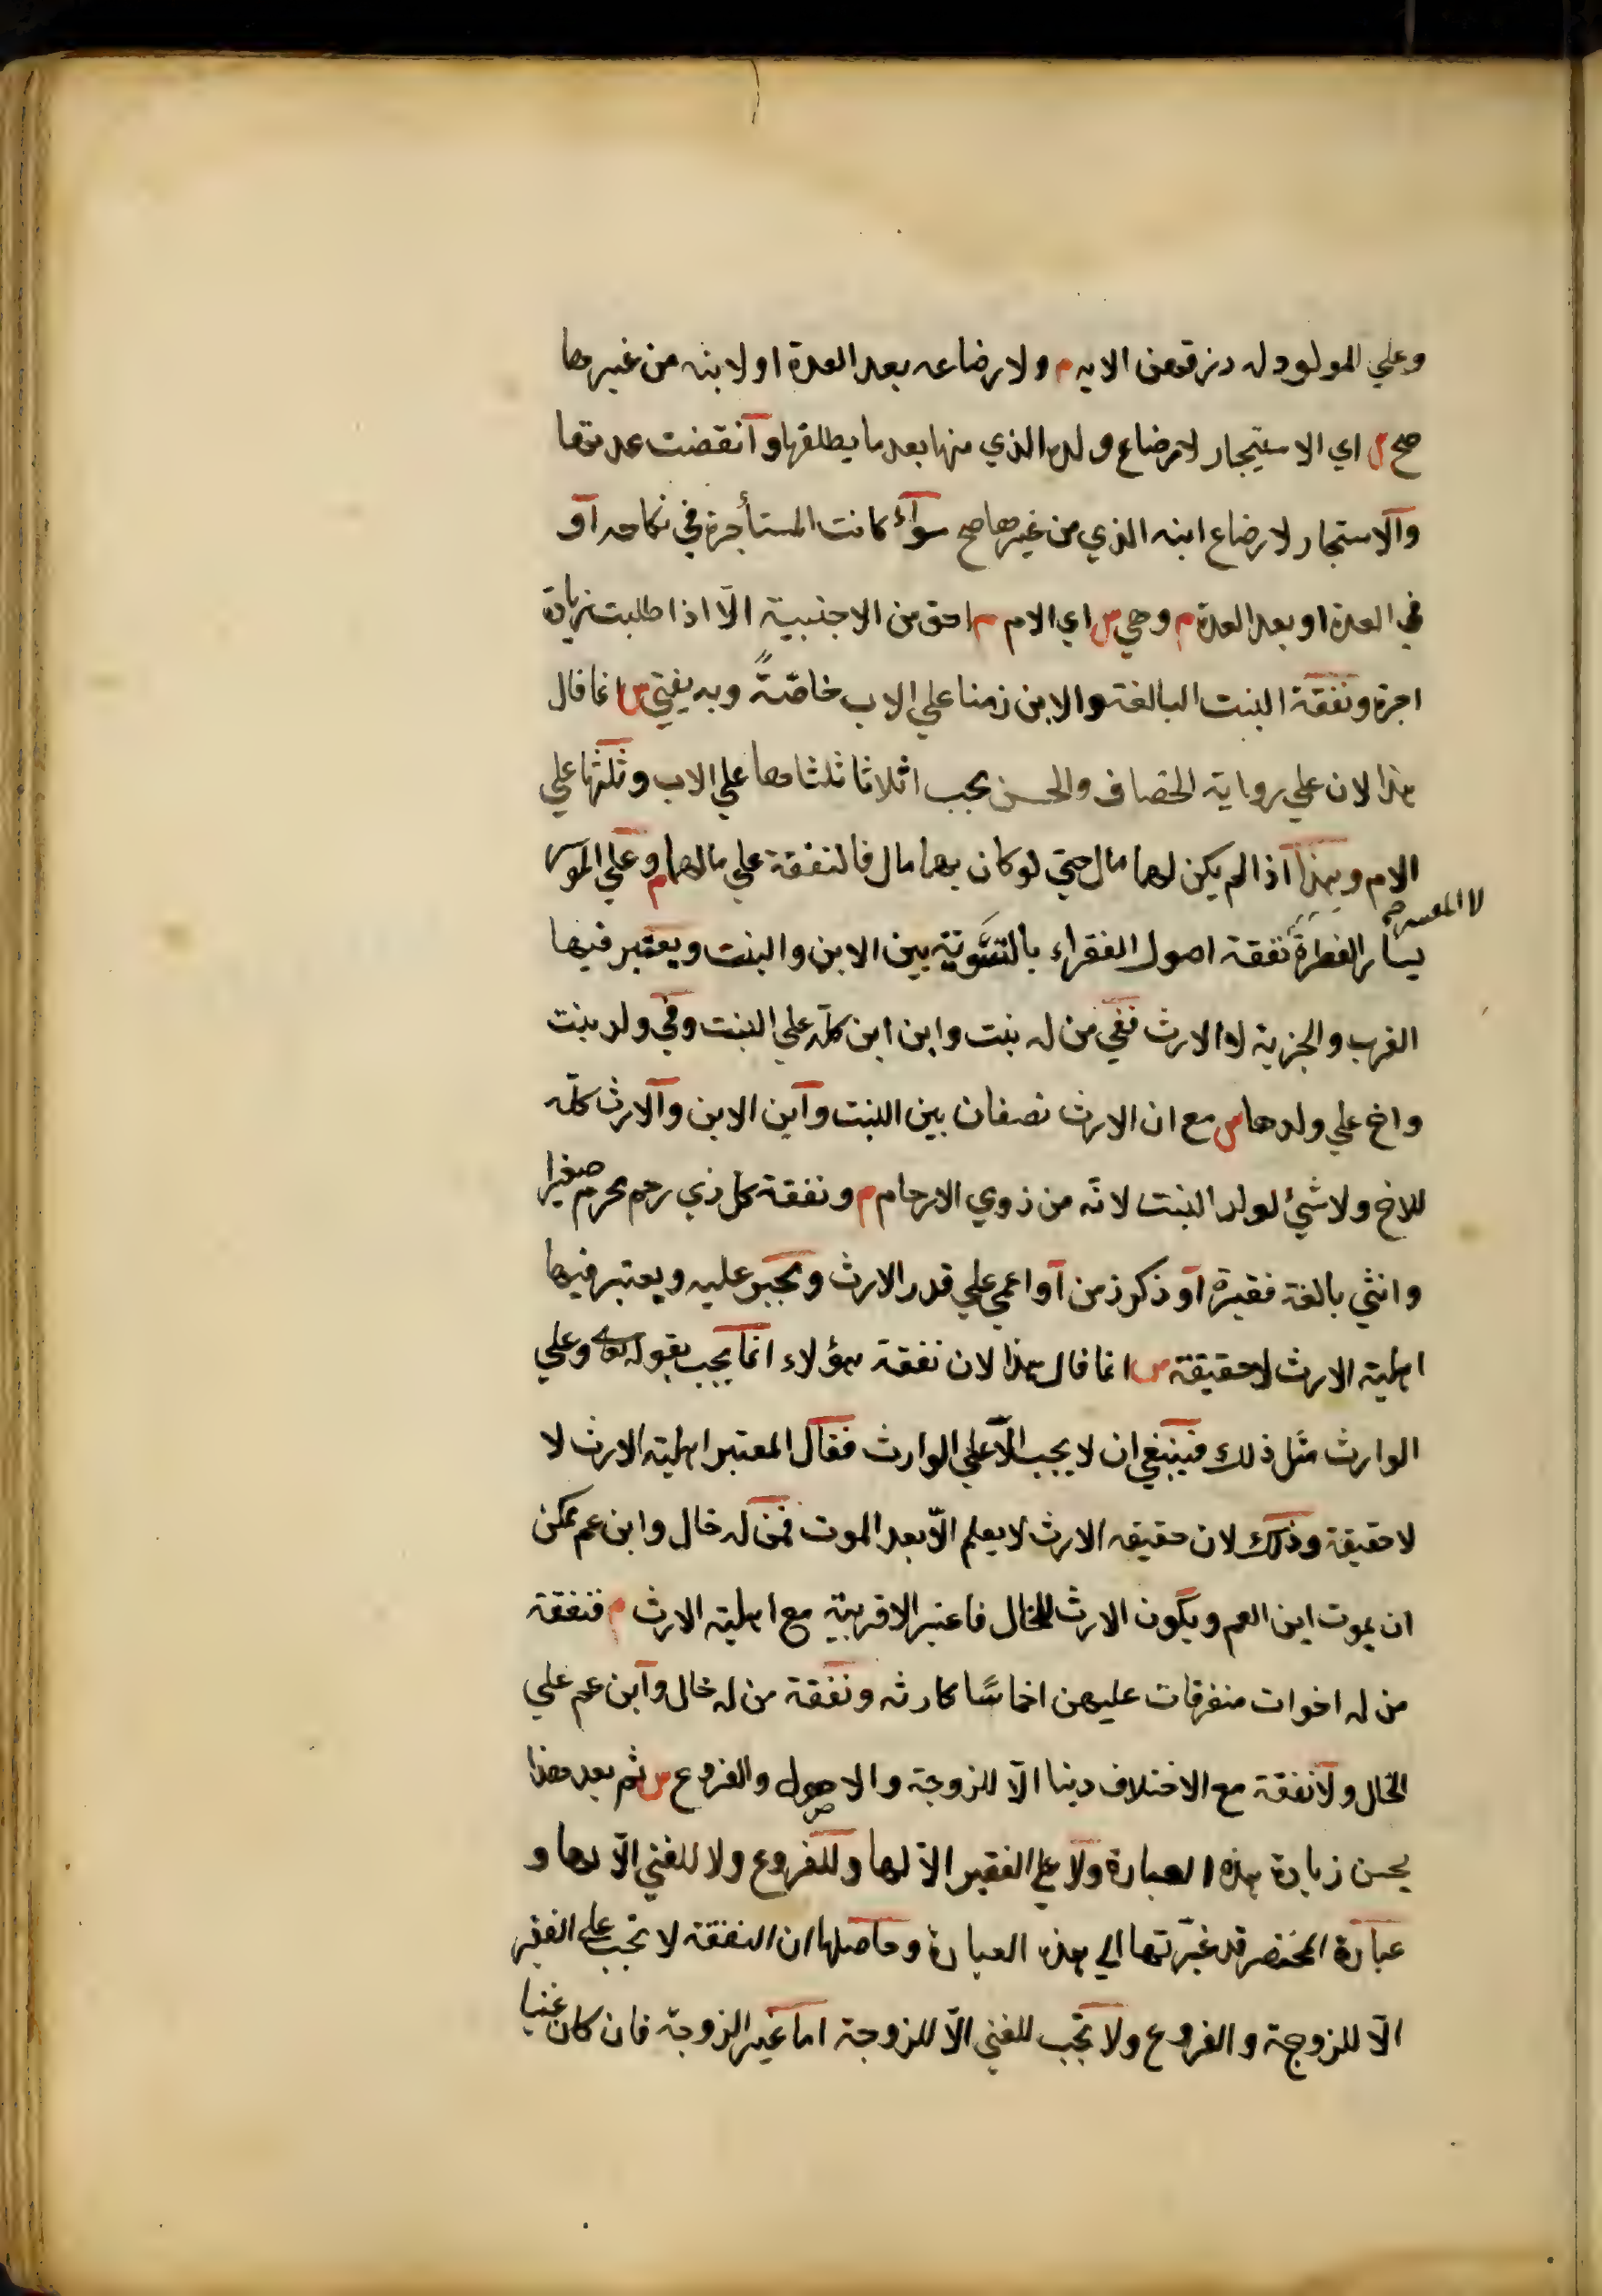 وعلي المولود له رزقهن الايه م ولا رضاعه بعد العدة او لابنه من غيرها
صح س اي الاستيجار لارضاع ولده الذي منها بعد ما يطلقها وانقضت عدتها
والاستيجار لارضاع ابنه الذي من غيرها صح سوآء كانت المستأجرة في نكاحه او
في العدة او بعد العدة م وهي س اي الام م احق من الاجنبية الّا اذا طلبت زيادة
اجرة ونفقة البنت البالغة والابن زمنا علي الاب خاصّةً وبه يفتي س انما قال
هذا لان علي رواية الخصاف والحسن يجب اثلاثا ثلثاها علي الاب وثلثها علي
الام وهذا اذا لم يكن لهما مال حتي لو كان لهما مال فالنفقة علي مالهما م وعلي الموسر
لا المعسر صح
يسار الفطرة نفقة اصول الفقراء بالتسَّوية بين الابن والبنت ويعتبر فيها
القرب والجزية لا الارث ففي من له بنت وابن ابن كلّه علي البنت وفي ولد بنت
واخ علي ولدها س مع ان الارث نصفان بين البنت وابن الابن والارث كلّه
للاخ ولا شئ لولد البنت لانّه من ذوي الارحام م ونفقة كل ذي رحم محرم صغيرا
وانثي بالغة فقيرة او ذكر زمن او اعمي علي قدر الارث ويجبر عليه ويعتبر فيها
اهلية الارث لا حقيقة س انما قال هذا لان نفقة هؤلاء انما يجب بقوله تعالى وعلي
الوارث مثل ذلك فينبغي ان لا يجب الّا علي الوارث فقال المعتبر اهلية الارث لا
لا حقيقة وذلك لان حقيقه الارث لا يعلم الّا بعد الموت فمن له خال وابن عم يمكن
ان يموت ابن العم ويكون الارث للخال فاعتبر الاقربية مع اهلية الارث م فنفقة
من له اخوات متفرقات عليهن اخماسًا كارثه ونفقة من له خال وابن عم علي
الخال ولا نفقة مع الاختلاف دينا الّا للزوجة والاصول والفروع س ثم بعد هذا
يحسن زيادة هذه العبارة ولا علي الفقير الّا لها وللفروع ولا للغني الّا لها و
عبارة المختصر قد غيّرتها الي هذه العبارة وحاصلها ان النفقة لا تجب علي الفقير
الّا للزوجة والفروع ولا تجب للغني الّا للزوجة اما غير الزوجة فان كان غنيا